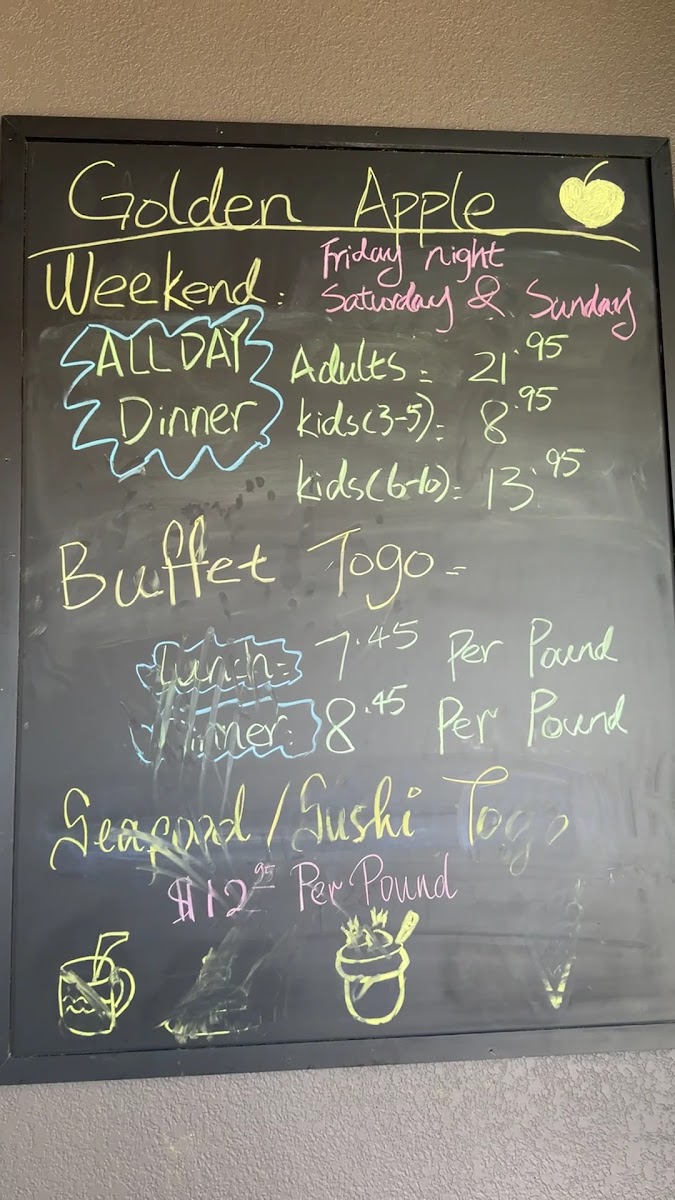 Golden Apple
Weekend: Friday night
Saturday & Sunday
ALL DAY
Dinner
Adults: 21.95
kids(3-5): 8.95
kids(6-10): 13.95
Buffet Togo=
Lunch= 7.45 Per Pound
Dinner: 8.45 Per Pound
Seafood/Sushi Togo
$12.95 Per Pound